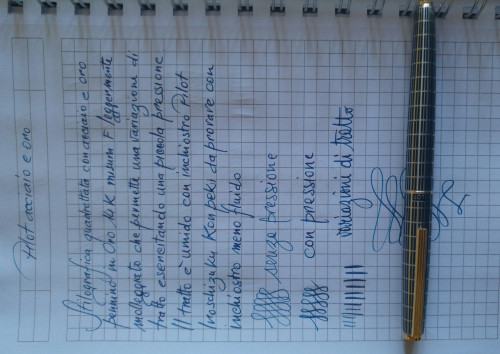 Pilot acciaio e oro
Stilografica quadrettata con acciaio e oro
pennino in oro 14K misura F leggermente
molleggiato che permette una variazione di
tratto esercitando una piccola pressione
Il tratto è umido con inchiostro Pilot
Iroschizuku Kon peki da provare con
inchiostro meno fluido
senza pressione
con pressione
variazioni di tratto